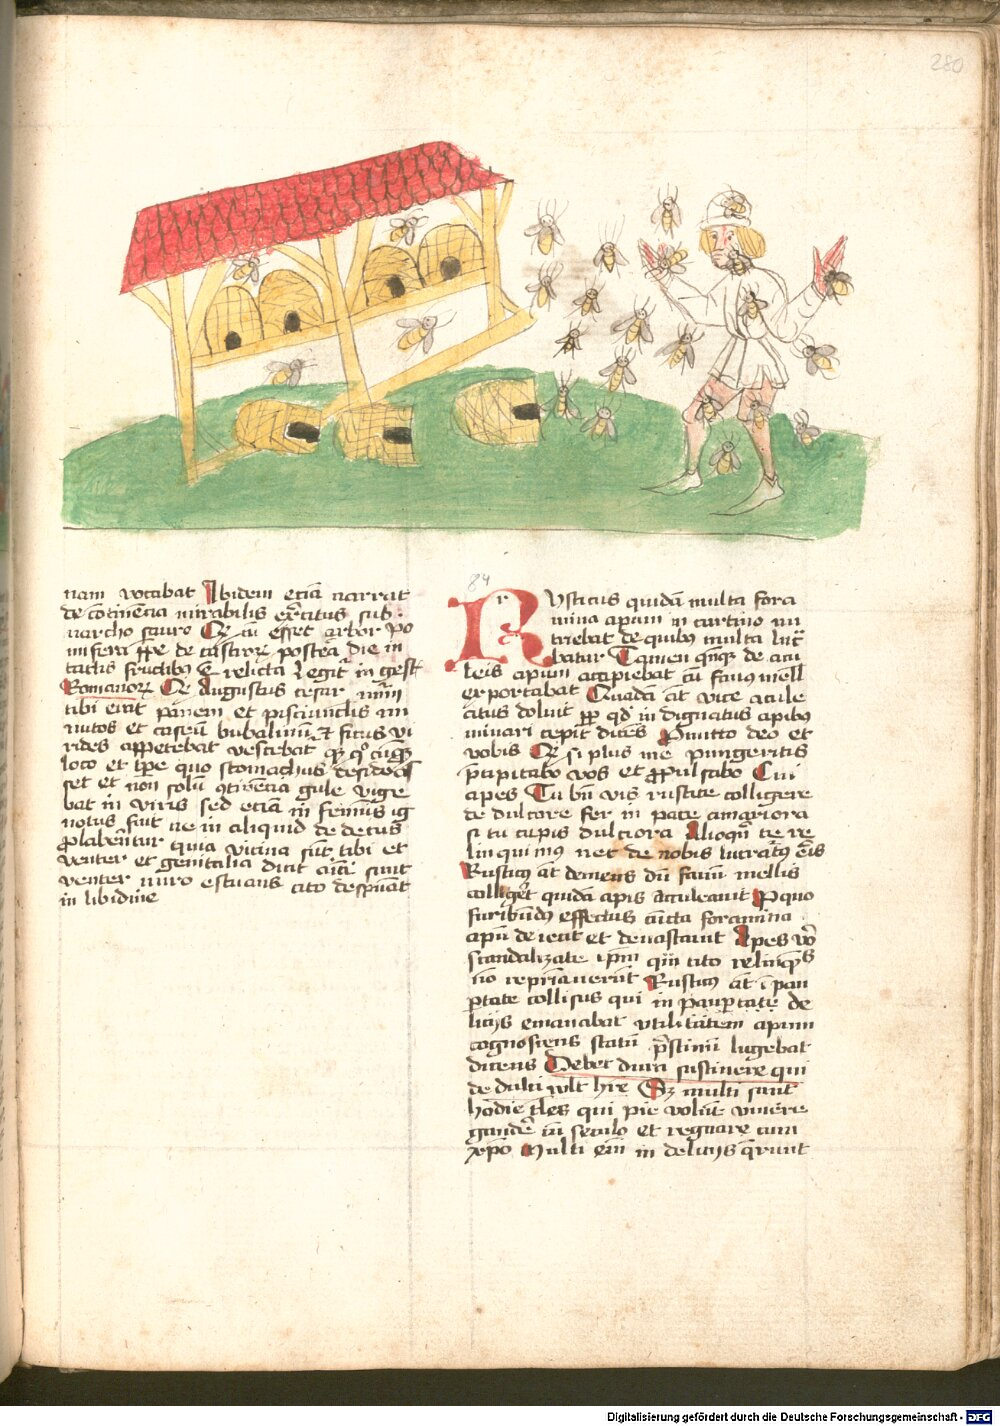 280
nam vocabat Ibidem etiā narrat
de cōtinēcia mirabilis ex̄citus sub
narcho scauro Qꝫ cū esset arbor po
mifera ꝓpe de castroꝝ postea die in
tactis fructibꝰ ē relicta Legit̄ in gest̄
Romanorꝝ Qꝫ Augustus cesar
cibi erat panem et pisciculis mi
nutos et caseū bubalinū et ficus vi
rides appetebat vescebat qꝫ qͦcūqꝫ
loco et tp̄e quo stomachus desideās
set et non solū cōtinēcia gule vige
bat in viris sed etiam in feminis ig
notus fuit ne in aliquid de decus
ꝓlaberent̄ quia vicina sūt cibi et
venter et genitalia dicit
venter mero estuans cito despūat
in libidine
84
Rusticus quidā multa fora
mina apum in cartino nu
triebat de quibꝰ multa luc̄
batur Tamen qn̄qꝫ de acu
leis apum accipiebat cū fauū mell̄
exportabat Quadā at̄ vice acule
atus doluit ꝓꝑ qd̄ in dignatus apibꝰ
minari cepit dicēs Ꝓmitto deo et
vobis Qꝫ si plus me pungeritis
p̄cipitabo vos et ꝓpulsabo Cui
apes Tu bn̄ vis rustice colligere
de dulcore fer in pace amariora
si tu cupis dulciora Alioqn̄ te re
linquimꝰ nec de nobis lucratꝰ eris
Rusticꝰ at̄ demens dū fauū mellis
colliḡet quidā apis aculeauit Pro quo
furibūdꝰ effectus cūcta foramina
apū deiecit et deuastauit Apes v̄o
scandalizate ip̄m cito relinquēs
nō rep̄riauerūt Rusticꝰ at̄ ī pau
ꝑtate collisus qui in pauꝑtate de
licijs emanabat vtilitatem apum
cognoscens statū p̄stinū lugebat
dicens Debet dura sustinere qui
de dulci vult hr̄e Sꝫ multi sunt
hodie tles qui pie volūt viuere
gaudēt̄ in seculo et regnare cum
xp̄o Multi em̄ in delicijs q̄runt
Digitalisierung gefördert durch die Deutsche Forschungsgemeinschaft - DFG